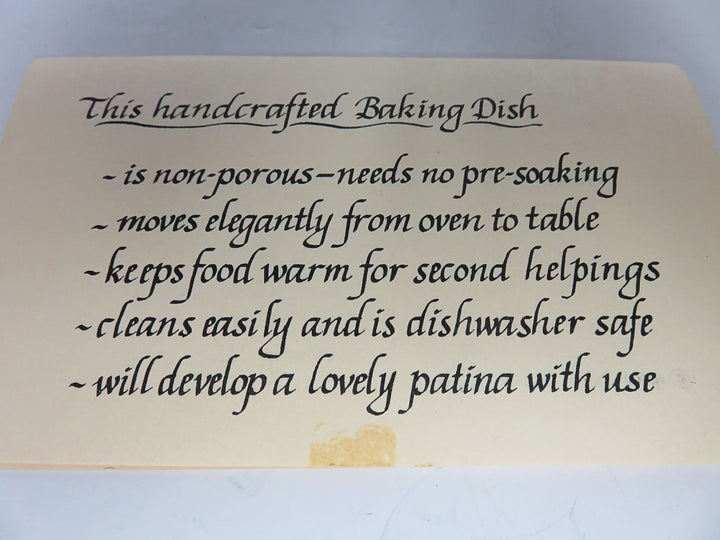 This handcrafted Baking Dish
~ is non-porous—needs no pre-soaking
~ moves elegantly from oven to table
~ keeps food warm for second helpings
~ cleans easily and is dishwasher safe
~ will develop a lovely patina with use